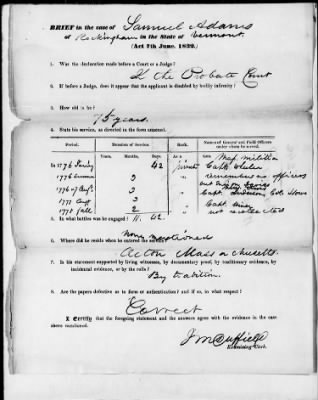 BRIEF in the case of Samuel Adams
of Rockingham in the State of Vermont.
(Act 7th June, 1832.)
1. Was the declaration made before a Court or a Judge?
If the Probate Court
2. If before a Judge, does it appear that the applicant is disabled by bodily infirmity?
3. How old is he?
75 years
4. State his service, as directed in the form annexed.
Period. Duration of Service. Rank. Names of General and Field Officers under whom he served.
Years. Months. Days. As a
In 1776 42 private Mass militia
1776 3 " remembers no officers
1776 of Augt 3 " Capt. Col. Howe
1777 Augt 3 " Capt.
1777 fall 2 " not recollected
11. 42.
5. In what battles was he engaged?
None mentioned
6. Where did he reside when he entered the service?
Acton Massachusetts
7. Is his statement supported by living witnesses, by documentary proof, by traditionary evidence, by
incidental evidence, or by the rolls?
By tradition.
8. Are the papers defective as to form or authentication? and if so, in what respect?
Correct
I CERTIFY that the foregoing statement and the answers agree with the evidence in the case
above mentioned.
Examining Clerk.